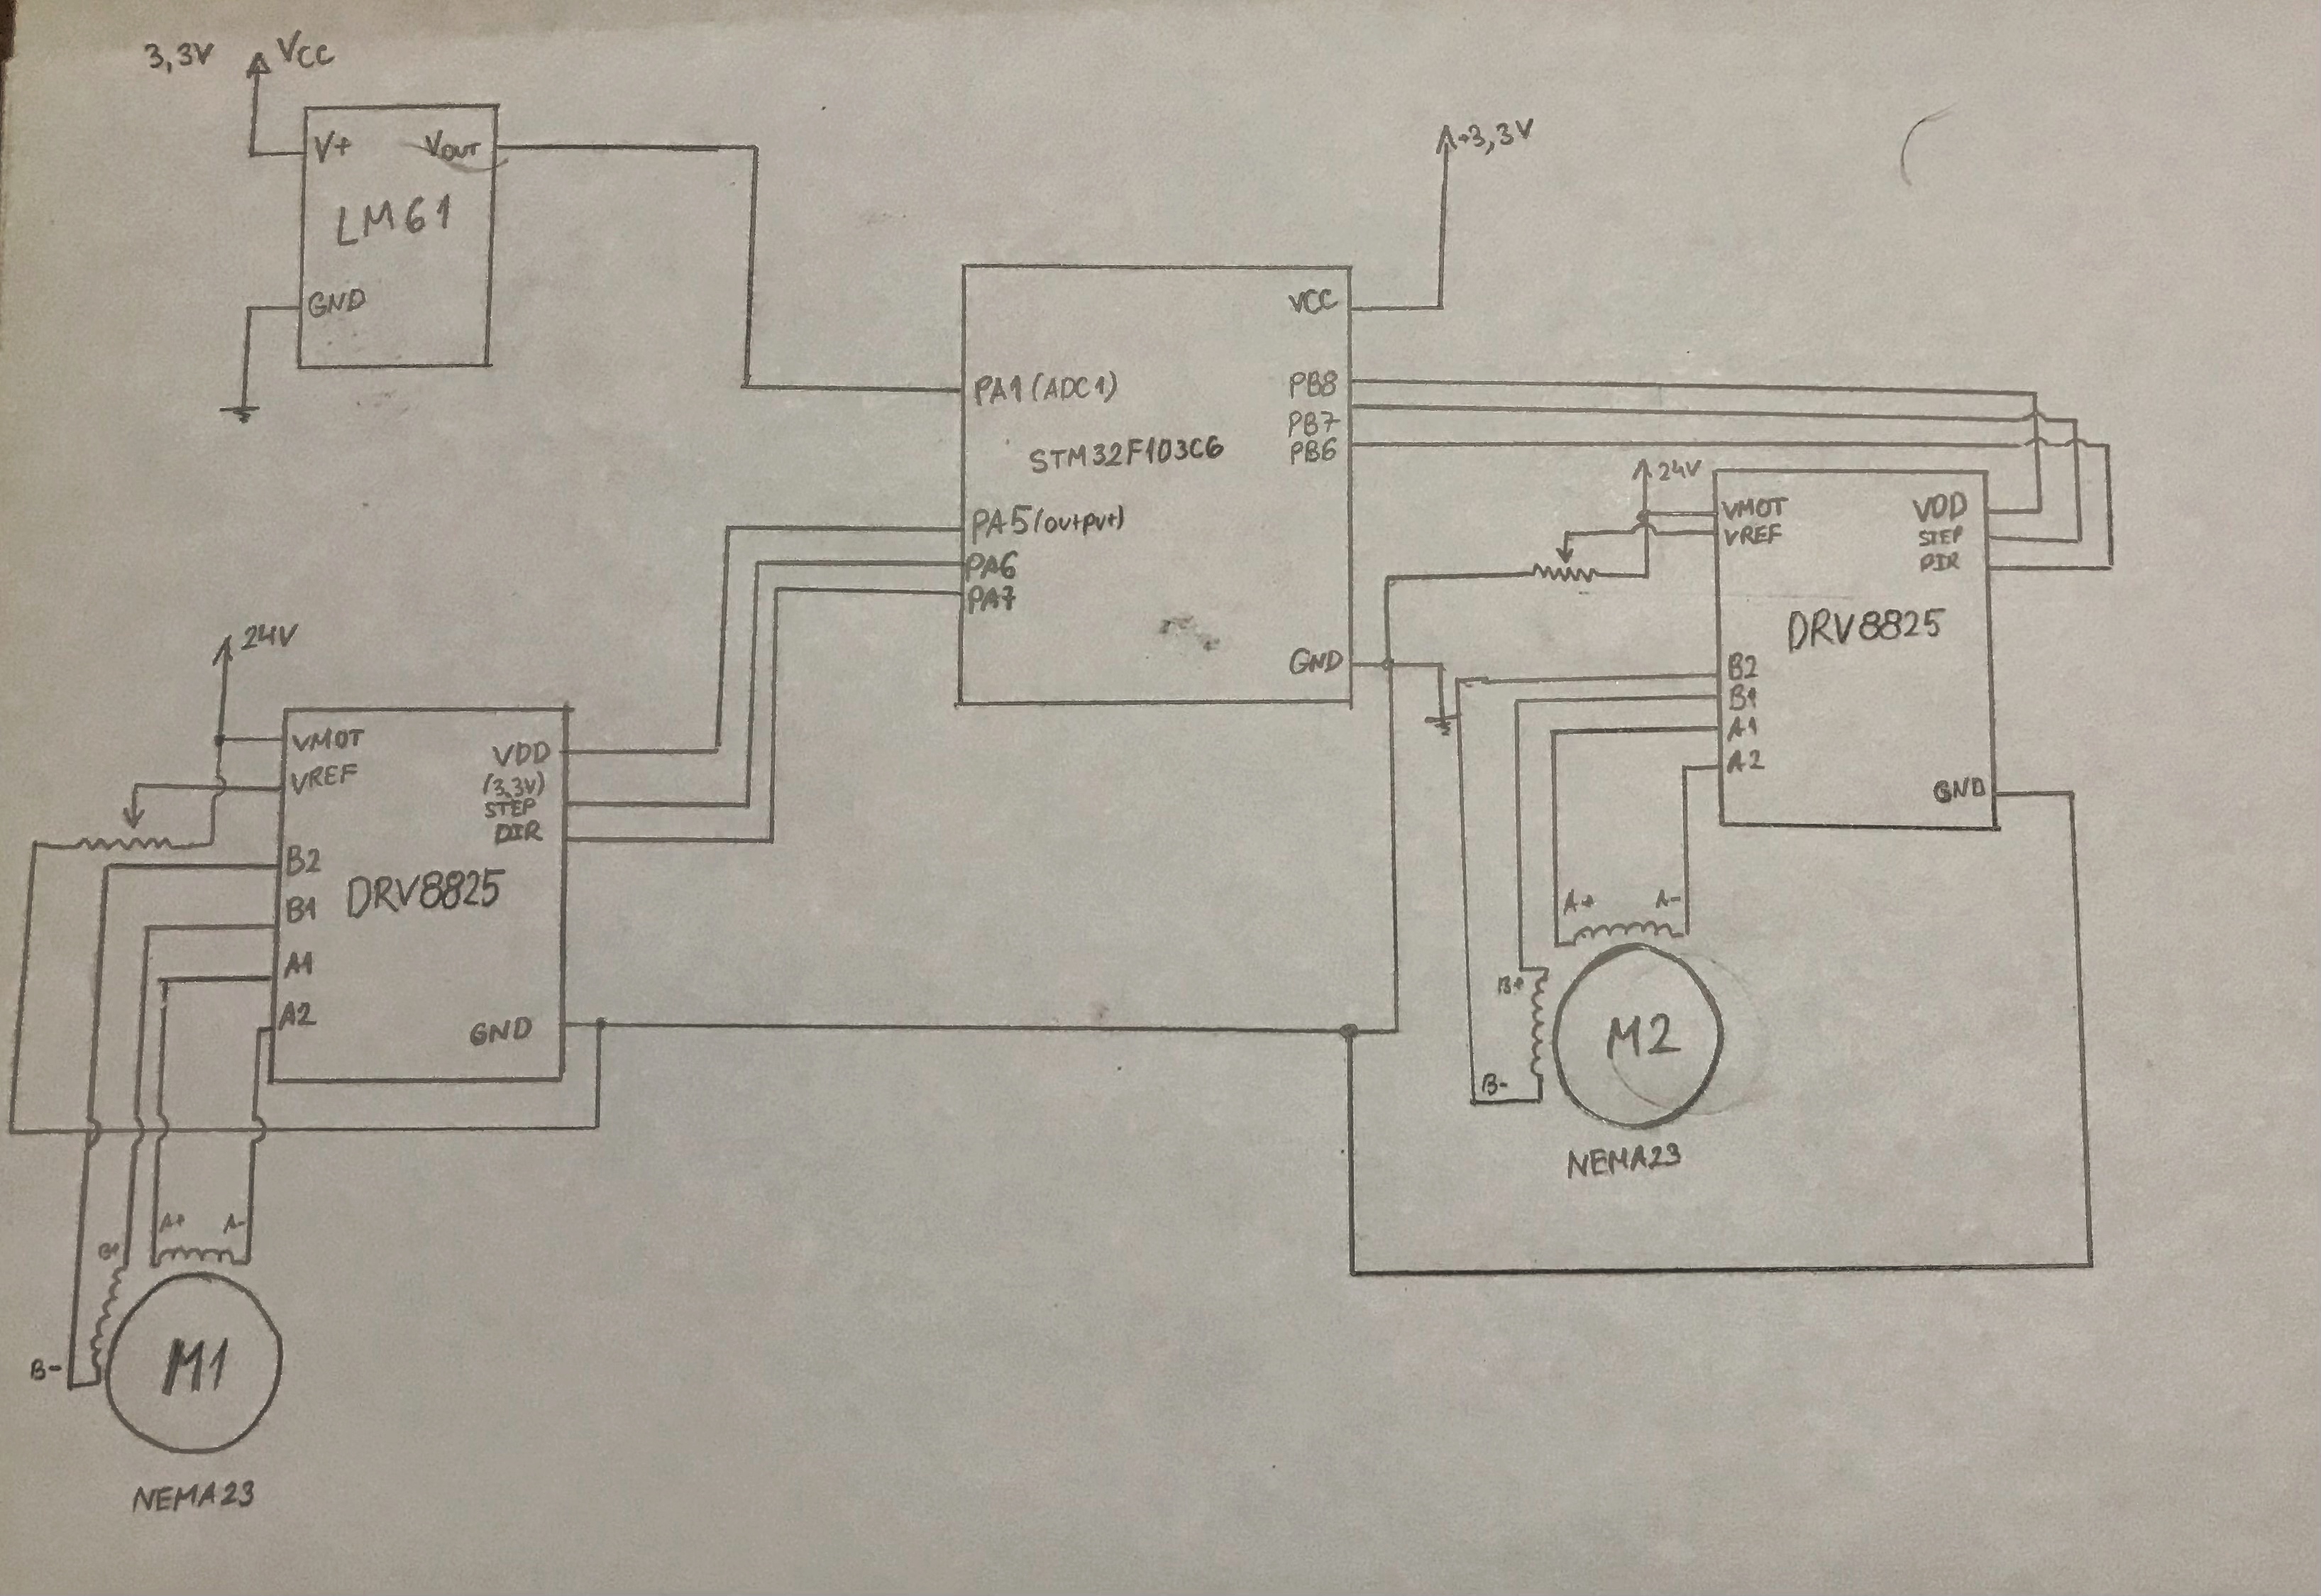 3,3V VCC
V+ VOUT
LM61
GND
+3,3V
VCC
PA1(ADC1) PB8
PB7
STM32F103C6 PB6
PA5(output)
PA6
PA7
GND
24V
VMOT VDD
VREF STEP
DIR
DRV8825
B2
B1
A1
A2
GND
A+ A-
B+
M2
B-
NEMA23
24V
VMOT VDD
VREF (3.3V)
STEP
DIR
B2
B1 DRV8825
A1
A2 GND
A+ A-
B+
B- M1
NEMA23